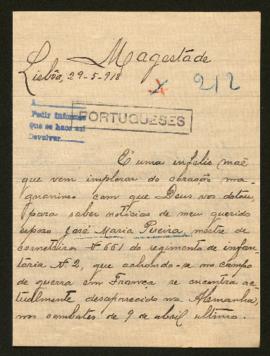 Magestade
Lisbôa, 29-5-918
X 212
A
Pedir informes
que se hace así
Devolver.
PORTUGUESES
É uma infeliz mãe
que vem implorar do coração ma-
gnanimo com que Deus vos dotou,
para saber noticias de meu querido
esposo José Maria Pereira mestre de
corneteiros Nº 661 do regimento de infan-
taria Nº 2, que achando-se no campo
de guerra em França se encontra ac-
tualmente desaparecido na Alemanha,
nos combates de 9 de abril ultimo.